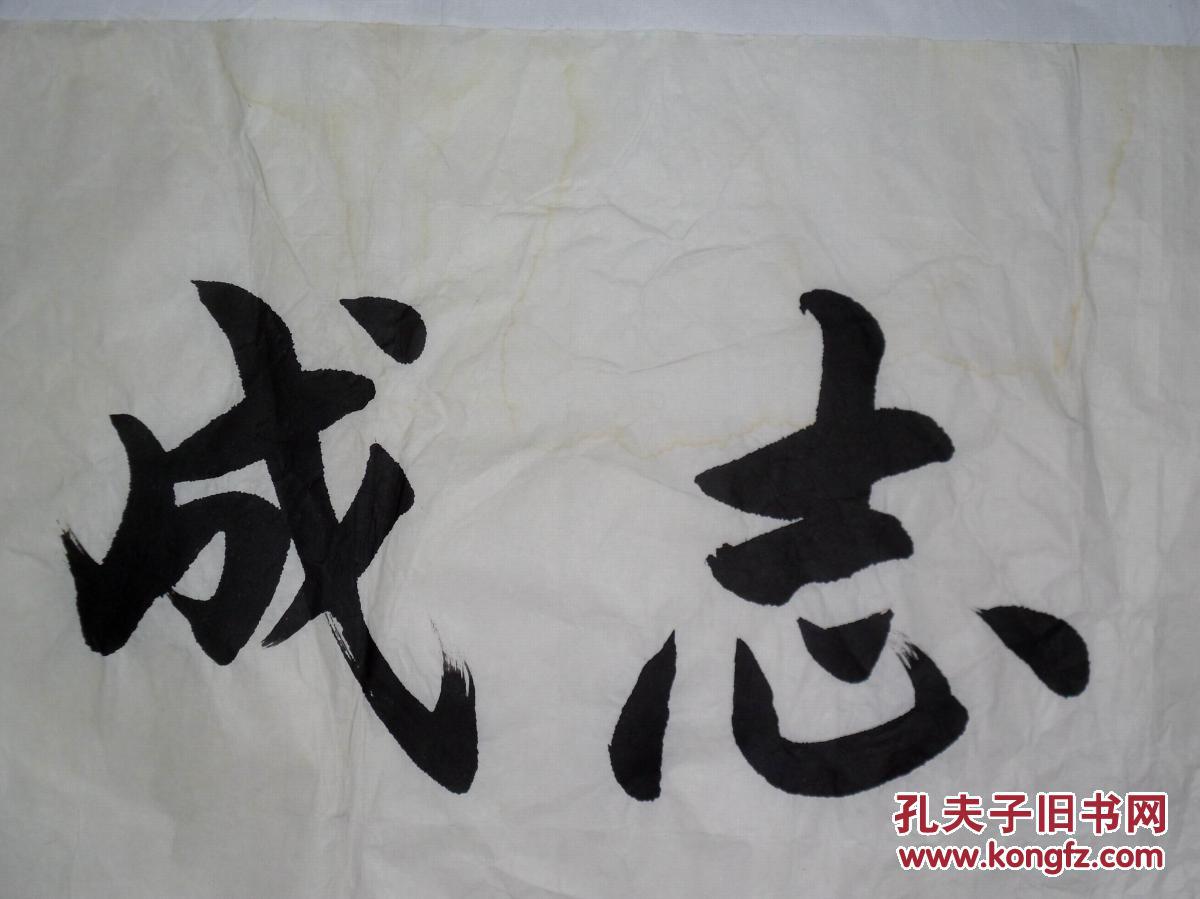 志成
孔夫子旧书网
www.kongfz.com